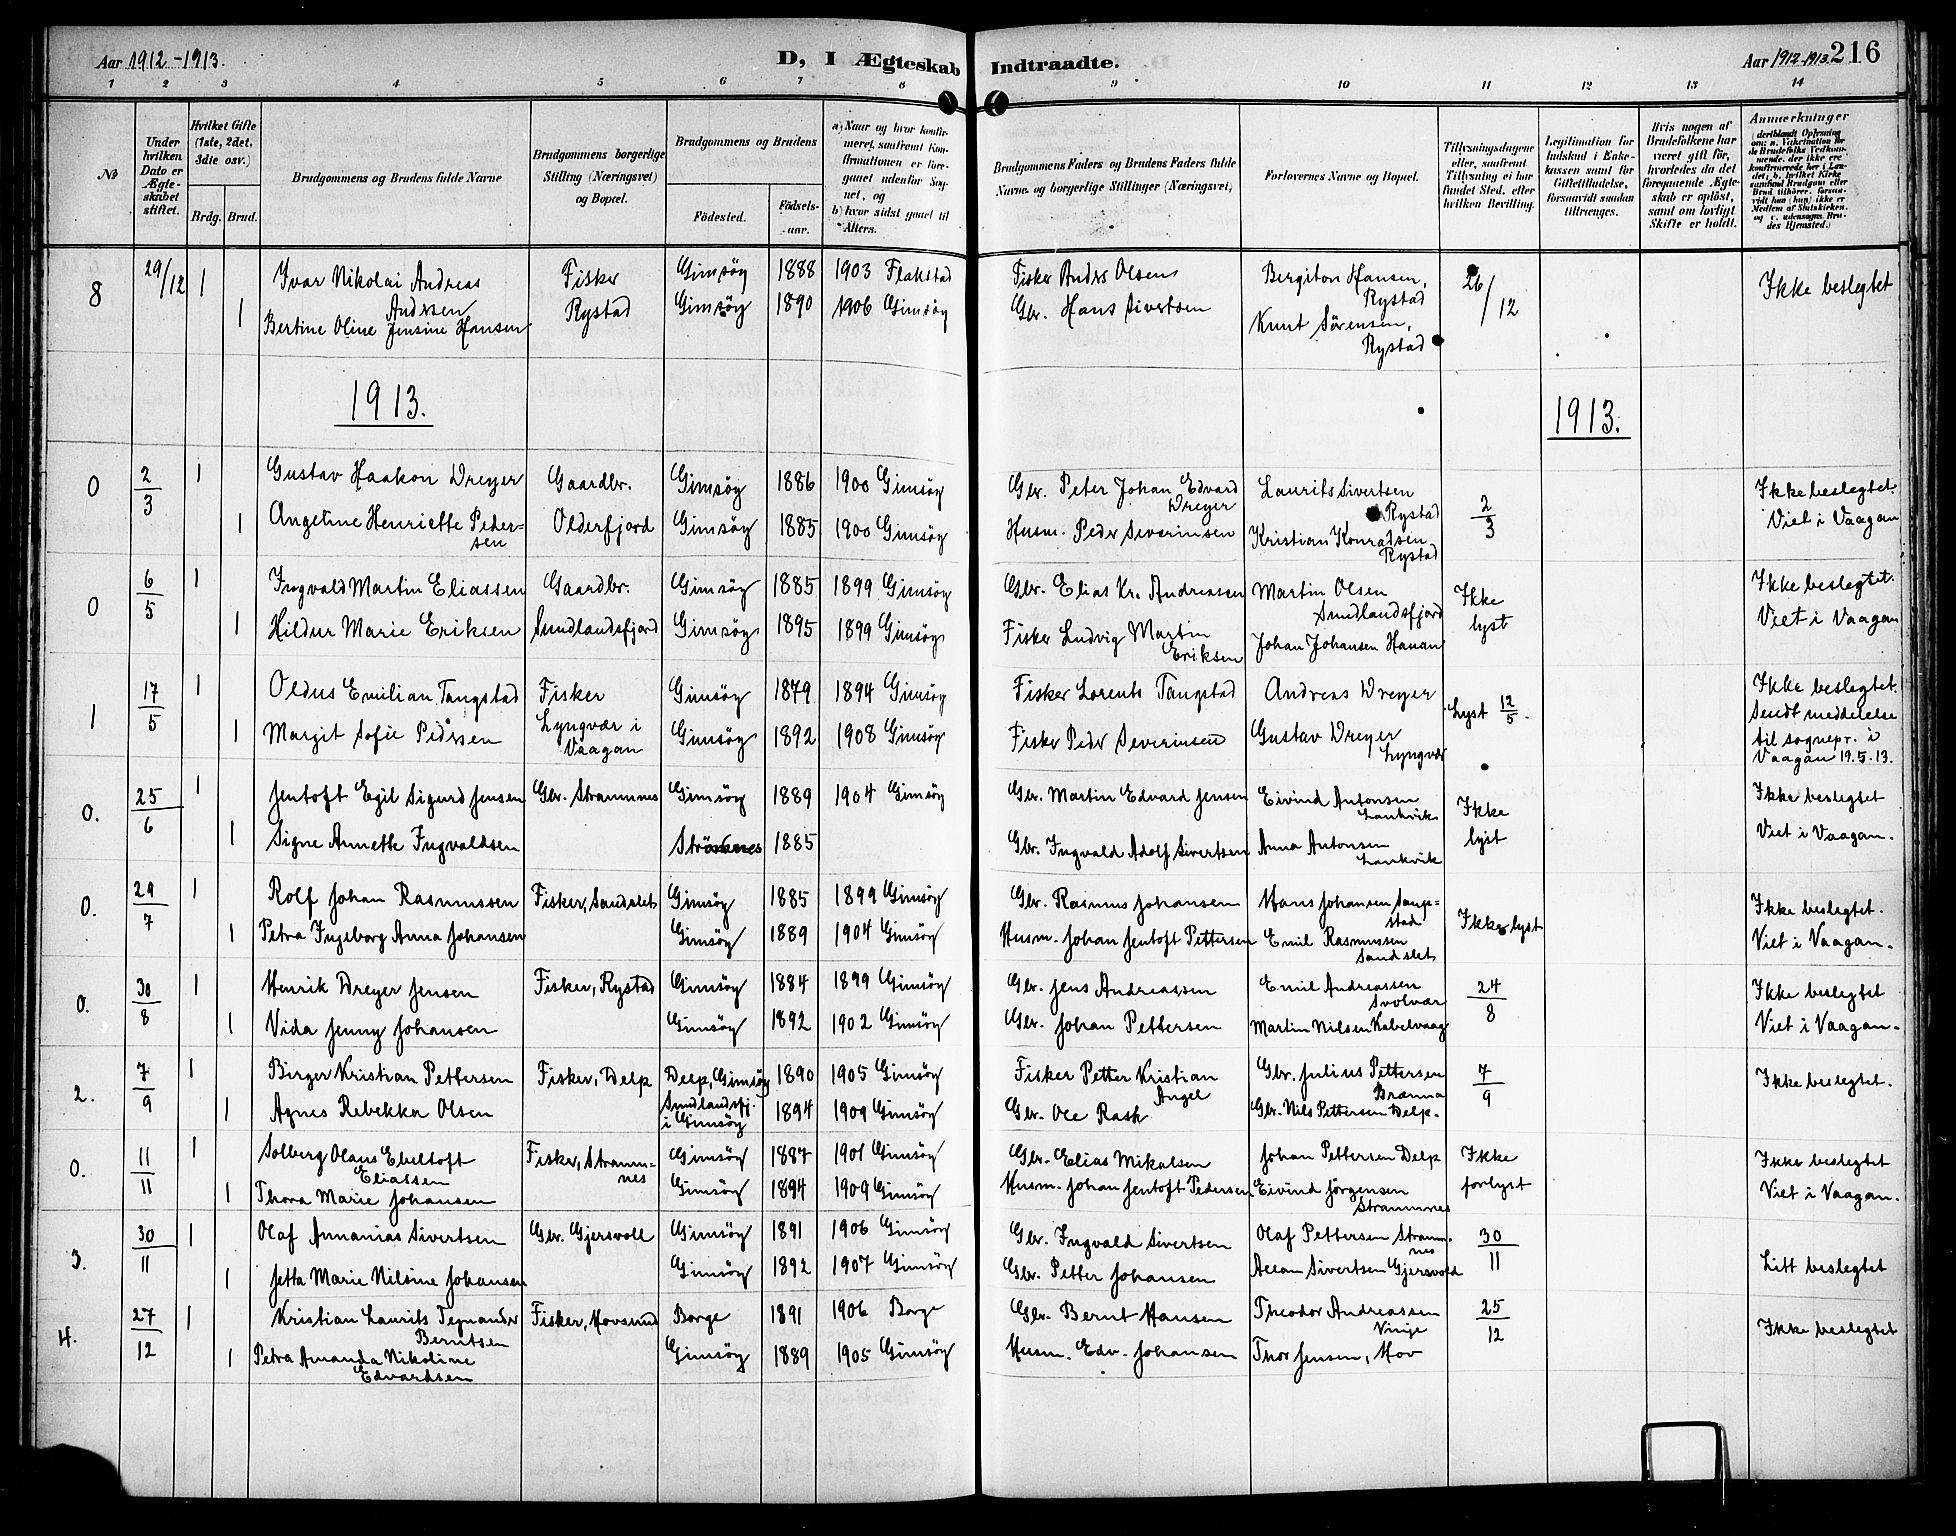 Aar 1912-1913.
D, I Ægteskab Indtraadte.
Aar 1912-1913. 216
1 2 3 4 5 6 7 8 9 10 11 12 13 14
No
Under hvilken Dato er Ægteskabet stiftet.
Hvilket Gifte (1ste, 2det, 3dte osv.)
Brdg. Brud.
Brudgommens og Brudens fulde Navne
Brudgommens borgerlige Stilling (Næringsvei) og Bopæl.
Brudgommens og Brudens
Födested.
Födsels-aar.
a) Naar og hvor konfirmeret, saafremt Konfirmationen er foregaaet udenfor Sognet, og
b) hvor sidst gaaet til Alters.
Brudgommens Faders og Brudens Faders fulde Navne og borgerlige Stillinger (Næringsvei)
Forlovernes Navne og Bopæl.
Tillysningsdagene eller, saafremt Tillysning ei har fundet Sted, efter hvilken Bevilling.
Legitimation for Indskud i Enkekassen samt for Giftetilladelse, forsaavidt saadan tiltrænges.
Hvis nogen af Brudefolkene har været gift för, hvorledes da det foregaaende Ægteskab er oplöst, samt om lovligt Skifte er holdt.
Anmerkninger
8 29/12 1 Ivar Nikolai Andreas Andrsen Fisker Gimsöy 1888 1903 Flakstad Fisker Andrs Olsens Bergiton Hansen, Rystad 26/12 Ikke beslegtet
1 Bertine Oline Jensine Hansen Rystad Gimsöy 1890 1906 Gimsöy Gbr. Hans Sivertsen Knut Sörensen, Rystad
1913. 1913.
0 2/3 1 Gustav Haakon Dreyer Gaardbr. Gimsöy 1886 1900 Gimsöy Gbr. Peter Johan Edvard Dreyer Laurits Sivertsen Rystad 2/3 Ikke beslegtet.
1 Angetine Henriette Pedersen Olderfjord Gimsöy 1885 1900 Gimsöy Husm. Pedr Severinsen Kristian Konratsen Rystad Viet i Vaagan
0 6/5 1 Ingvald Martin Eliassen Gaardbr. Gimsöy 1885 1899 Gimsöy Gbr. Elias Kr. Andreasen Martin Olsen Sundlandsfjord Ikke lyst Ikke beslegtet.
1 Hildur Marie Eriksen Sundlandsfjord Gimsöy 1895 1899 Gimsöy Fisker Ludvig Martin Eriksen Johan Johansen Hanan Viet i Vaagan
1 17/5 1 Oldus Emilian Tangstad Fisker Gimsöy 1879 1894 Gimsöy Fisker Lorents Tangstad Andreas Dreyer Lyst 12/5. Ikke beslegtet.
1 Margit Sofie Pedrsen Lyngvær i Vaagan Gimsöy 1892 1908 Gimsöy Fisker Pedr Severinsen Gustav Dreyer Lyngvær Sendt meddelelse til sognepr. i Vaagan 19.5.13.
0. 25/6 1 Jentoft Egil Sigurd Jensen Gbr. Stramnes Gimsöy 1889 1904 Gimsöy Gbr. Martin Edvard Jensen Eivind Antonsen Laukvik Ikke lyst Ikke beslegtet
1 Signe Annette Ingvaldsen 1885 Gbr. Ingvald Adolf Sivertsen Anna Antonsen Laukvik Viet i Vaagan.
0. 29/7 1 Rolf Johan Rasmussen Fisker, Sandslet Gimsöy 1885 1899 Gimsöy Gbr. Rasmus Johansen Hans Johansen Saupstad Ikke lyst Ikke beslegtet.
1 Petra Ingeborg Anna Johansen Gimsöy 1889 1904 Gimsöy Husm. Johan Jentoft Pettersen Emil Rasmussen Sandslet Viet i Vaagan.
0. 30/8 1 Henrik Dreyer Jensen Fisker, Rystad Gimsöy 1884 1899 Gimsöy Gbr. Jens Andreassen Emil Andreassen Svolvær 24/8 Ikke beslegtet
1 Vida Jenny Johansen Gimsöy 1892 1902 Gimsöy Gbr. Johan Pettersen Martin Nilsen Kabelvaag Viet i Vaagan.
2. 7/9 1 Birger Kristian Pettersen Fisker, Delp Delp, Gimsöy 1890 1905 Gimsöy Fisker Petter Kristian Angel Gbr. Julius Pettersen Brænna 7/9 Ikke beslegtet.
1 Agnes Rebekka Olsen Sundlandsfj. i Gimsöy 1894 1909 Gimsöy Gbr. Ole Rask Gbr. Nils Pettersen Delp.
0. 11/11 1 Solberg Olaus Ebeltoft Eliassen Fisker, Stramnes Gimsöy 1887 1901 Gimsöy Gbr. Elias Mikalsen Johan Pettersen Delp Ikke forlyst Ikke beslegtet
1 Thora Marie Johansen Gimsöy 1894 1909 Gimsöy Husm. Johan Jentoft Pedersen Eivind Jörgensen Stramnes Viet i Vaagan.
3. 30/11 1 Olaf Annanias Sivertsen Gbr. Gjersvoll Gimsöy 1891 1906 Gimsöy Gbr. Ingvald Sivertsen Olaf Pettersen Stramnes 30/11 Litt beslegtet
1 Jetta Marie Nilsine Johansen Gimsöy 1892 1907 Gimsöy Gbr. Petter Johansen Allan Sivertsen Gjersvold
4. 27/12 1 Kristian Laurits Tegnander Berntsen Fisker, Hovsund Borge 1891 1906 Borge Gbr. Bernt Hansen Theodor Andreassen Vinje 25/12 Ikke beslegtet
1 Petra Amanda Nikoline Edvardsen Gimsöy 1889 1905 Gimsöy Husm. Edv. Johansen Thor Jensen, Hov